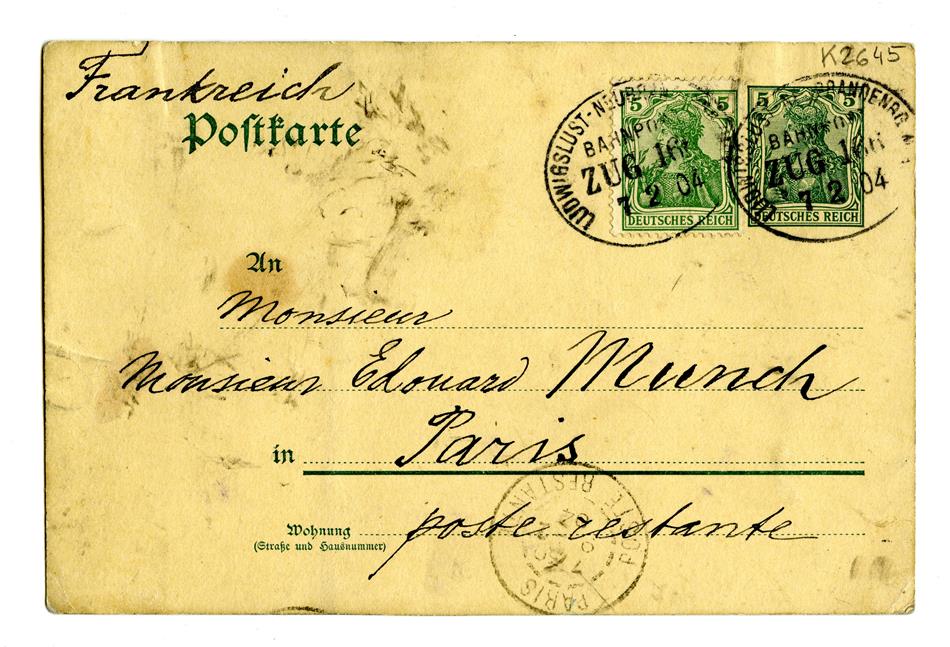 K2645
Frankreich
Postkarte
5 5 5 5
LUDWIGSLUST-NEUBRANDENBRG
BAHNPOST
ZUG
7 2 04
DEUTSCHES REICH
BRANDENBRG
BAHNPOST
ZUG
7 2 04
DEUTSCHES REICH
An
Monsieur
Monsieur Edouard Munch
in Paris
Wohnung poste restante
(Straße und Hausnummer)
PARIS
POSTE RESTANTE